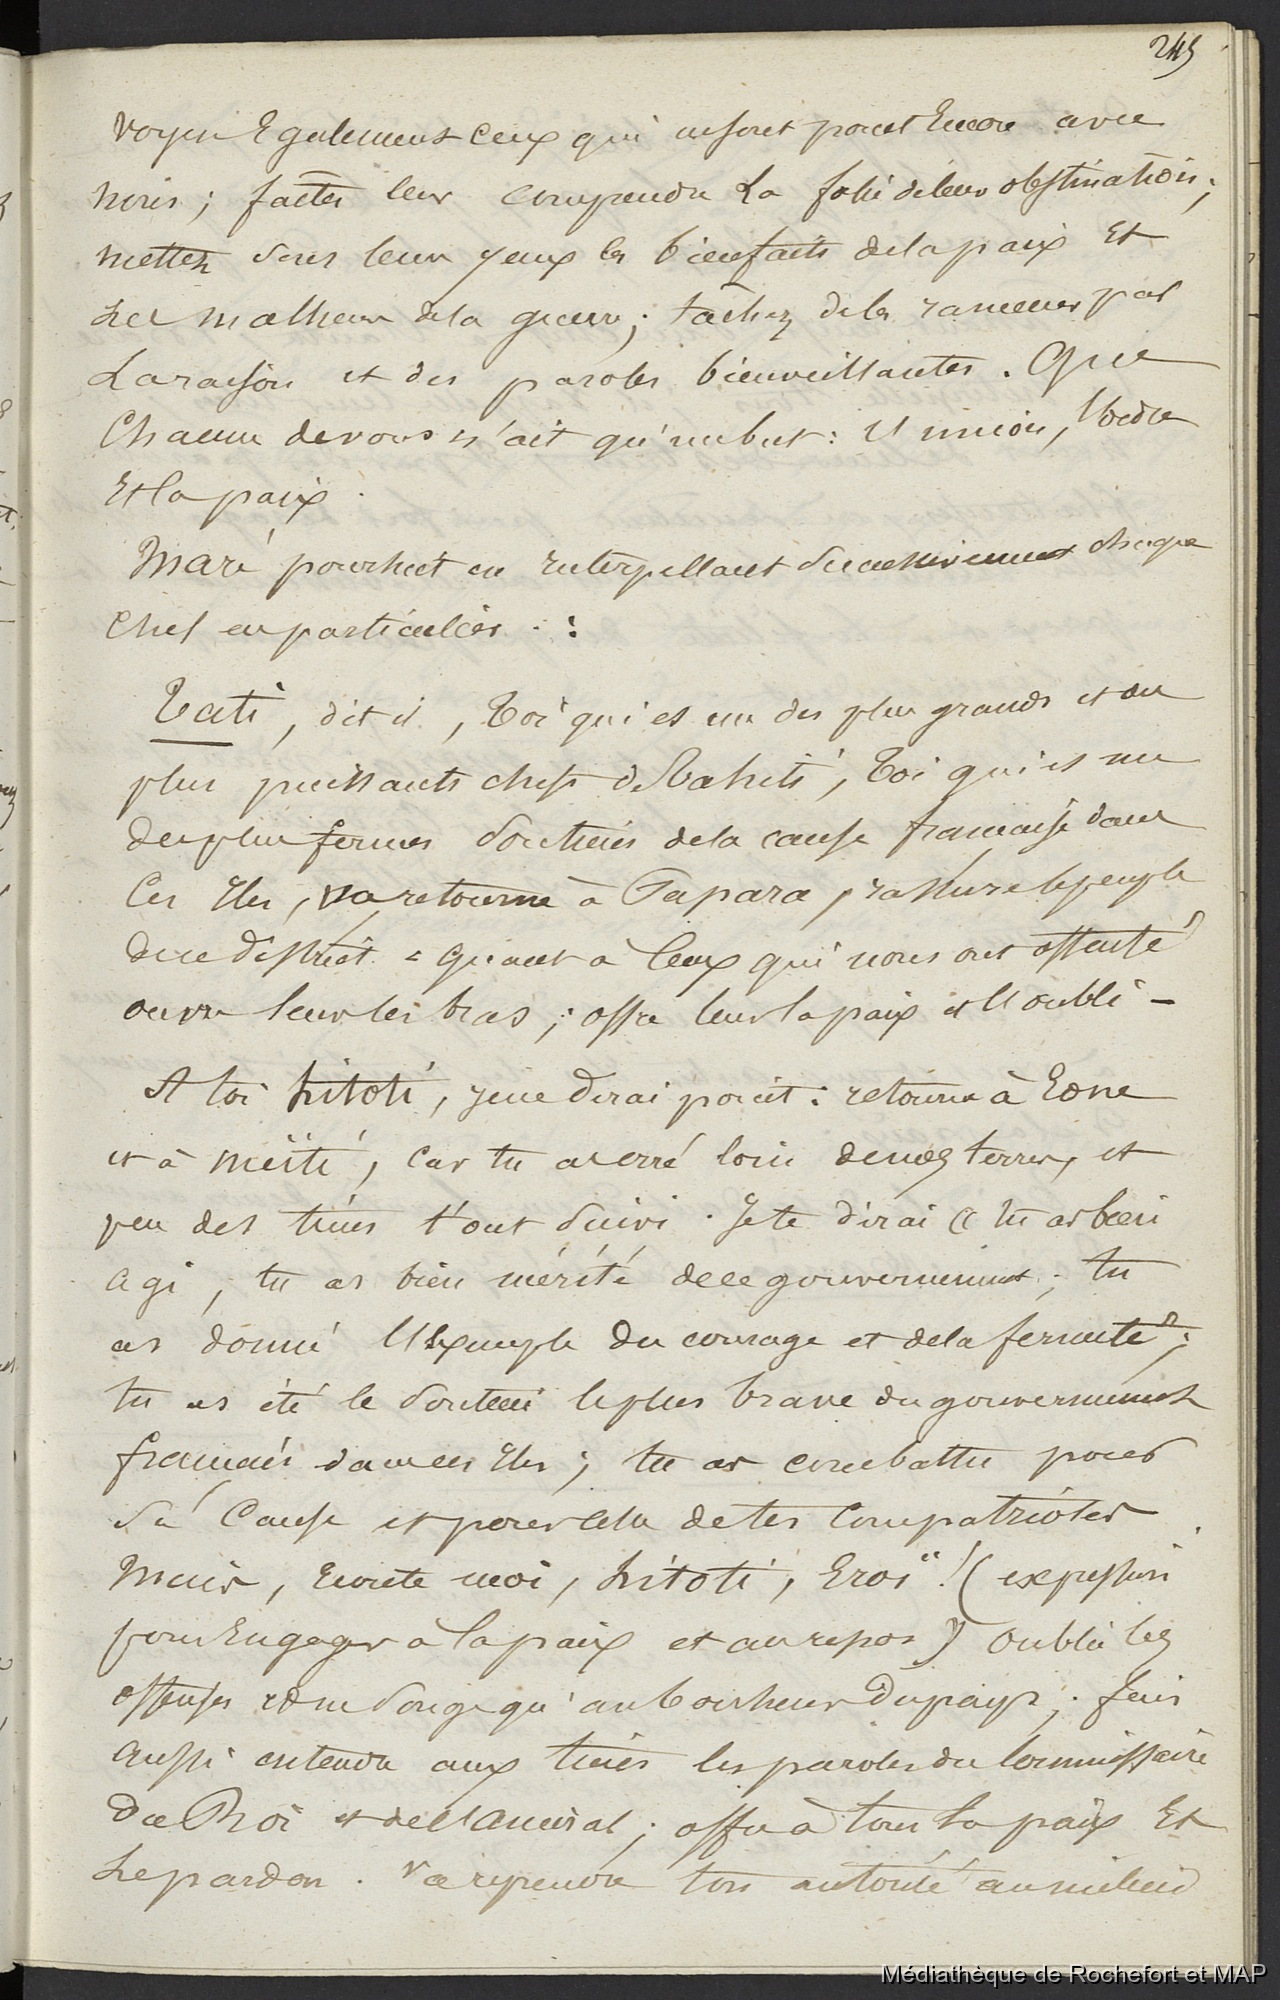 245
Voyez Egalement ceux qui ne sont point Encore avec
nous ; faites leur comprendre La folie de leur obstination ;
mettez sous leurs yeux les bienfaits de la paix Et
Les malheurs de la guerre ; tâchez de les ramener par
La raison et des paroles bienveillantes . Que
Chacun de vous n'ait qu'un but : l'union, l'ordre
Et la paix .
Maré poursuit en interpellant successivement chaque
Chef en particulier . :
Tati , dit il , Toi qui es un des plus grands et des
plus puissants chefs de Tahiti , Toi qui es un
des plus fermes soutiens de la cause française dans
Ces Iles , va retourne à Papara , rassure le peuple
de ce district . = Quant à Ceux qui nous ont offensé
ouvre leur les bras ; offre leur la paix et l'oubli –
A toi hitoti , je ne dirai point : retourne à
et à , car tu as erré loin de nos terres , et
peu des tiens t'ont suivi . Je te dirai « tu as bien
agi , tu as bien mérité de ce gouvernement ; tu
as donné l'Exemple du courage et de la fermeté ;
tu as été le soutien le plus brave du gouvernement
français dans ces Iles ; tu as combattu pour
sa Cause et pour celle de tes Compatriotes .
Mais , Ecoute moi , hitoti , Eroi ! ( expression
pour Engager à la paix et au repos ) oublie les
offenses et ne songe qu'au bonheur du pays ; fais
aussi entendre aux tiens les paroles du Commissaire
du Roi et de l'Amiral ; offre à tous la paix Et
Le pardon . Va reprendre ton autorité au milieu
Médiathèque de Rochefort et MAP